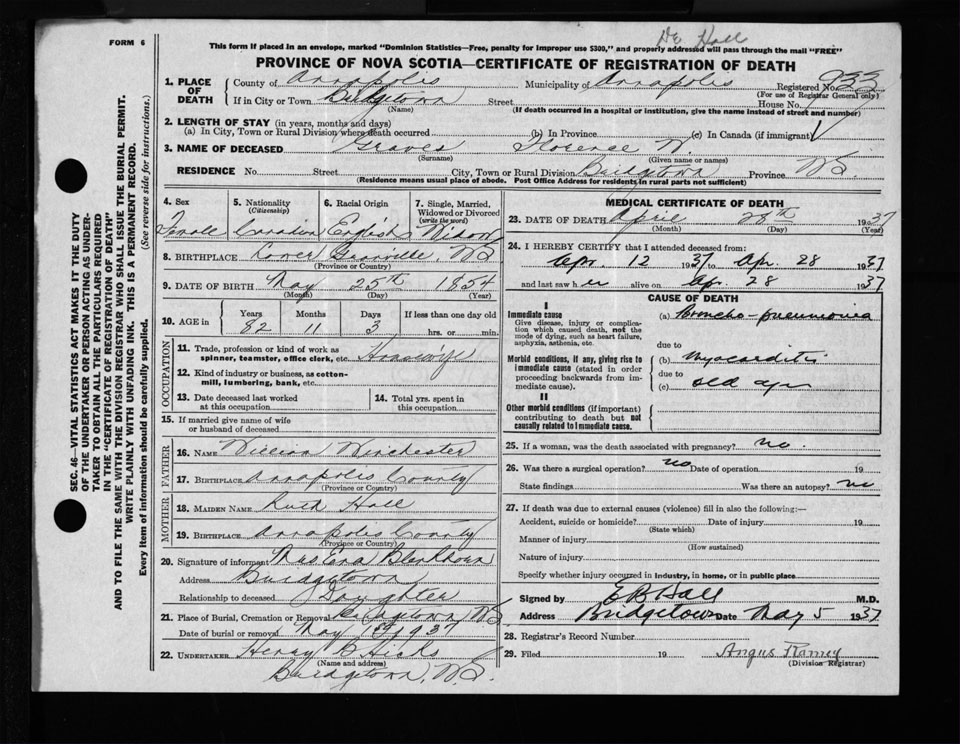 Dr Hall
FORM 6
This form if placed in an envelope, marked "Dominion Statistics—Free, penalty for improper use $300," and properly addressed will pass through the mail "FREE"
PROVINCE OF NOVA SCOTIA—CERTIFICATE OF REGISTRATION OF DEATH
SEC. 46—VITAL STATISTICS ACT MAKES IT THE DUTY
OF THE UNDERTAKER OR PERSON ACTING AS UNDER-
TAKER TO OBTAIN ALL THE PARTICULARS REQUIRED
IN THE "CERTIFICATE OF REGISTRATION OF DEATH"
AND TO FILE THE SAME WITH THE DIVISION REGISTRAR WHO SHALL ISSUE THE BURIAL PERMIT.
WRITE PLAINLY WITH UNFADING INK. THIS IS A PERMANENT RECORD.
Every item of information should be carefully supplied. (See reverse side for instructions.)
1. PLACE OF DEATH County of Annapolis Municipality of Annapolis Registered No. 933
(For use of Registrar General only)
If in City or Town Bridgetown Street House No.
(Name) (If death occurred in a hospital or institution, give the name instead of street and number)
2. LENGTH OF STAY (in years, months and days)
(a) In City, Town or Rural Division where death occurred (b) In Province (c) In Canada (if immigrant)
3. NAME OF DECEASED Graves Florence W.
(Surname) (Given name or names)
RESIDENCE No. Street City, Town or Rural Division Bridgetown Province N.S.
(Residence means usual place of abode. Post Office Address for residents in rural parts not sufficient)
4. Sex 5. Nationality (Citizenship) 6. Racial Origin 7. Single, Married, Widowed or Divorced (write the word)
Female Canadian English Widow
8. BIRTHPLACE Lower Granville, N.S.
(Province or Country)
9. DATE OF BIRTH May 25th 1854
(Month) (Day) (Year)
10. AGE in Years Months Days If less than one day
82 11 3 hrs. or min.
OCCUPATION
11. Trade, profession or kind of work as
spinner, teamster, office clerk, etc. Housewife
12. Kind of industry or business, as cotton-
mill, lumbering, bank, etc.
13. Date deceased last worked at this occupation 14. Total yrs. spent in this occupation
15. If married give name of wife
or husband of deceased
FATHER
16. NAME William Winchester
17. BIRTHPLACE Annapolis County
(Province or Country)
MOTHER
18. MAIDEN NAME Ruth Hall
19. BIRTHPLACE Annapolis County
(Province or Country)
20. Signature of informant Mrs
Address Bridgetown
Relationship to deceased Daughter
21. Place of Burial, Cremation or Removal Bridgetown, N.S.
Date of burial or removal May 1st 1937
22. UNDERTAKER Henry B Hicks
(Name and address)
Bridgetown, N.S.
MEDICAL CERTIFICATE OF DEATH
23. DATE OF DEATH April 28th 1937
(Month) (Day) (Year)
24. I HEREBY CERTIFY that I attended deceased from:
Apr. 12 1937 to Apr. 28 1937
and last saw her alive on Apr. 28 1937
CAUSE OF DEATH
I
Immediate cause (a) Broncho-pneumonia
Give disease, injury or complica-
tion which caused death, not the
mode of dying, such as heart failure,
asphyxia, asthenia, etc.
due to
Morbid conditions, if any, giving rise to (b) Myocarditis
immediate cause (stated in order
proceeding backwards from im-
mediate cause).
due to
(c) old age
II
Other morbid conditions (if important)
contributing to death but not
causally related to immediate cause.
25. If a woman, was the death associated with pregnancy? no.
26. Was there a surgical operation? no Date of operation 19
State findings Was there an autopsy? no
27. If death was due to external causes (violence) fill in also the following:—
Accident, suicide or homicide? Date of injury 19
(State which)
Manner of injury
(How sustained)
Nature of injury
Specify whether injury occurred in industry, in home, or in public place
Signed by E B Hall M.D.
Address Bridgetown Date May 5 1937
28. Registrar's Record Number
29. Filed 19 Angus
(Division Registrar)